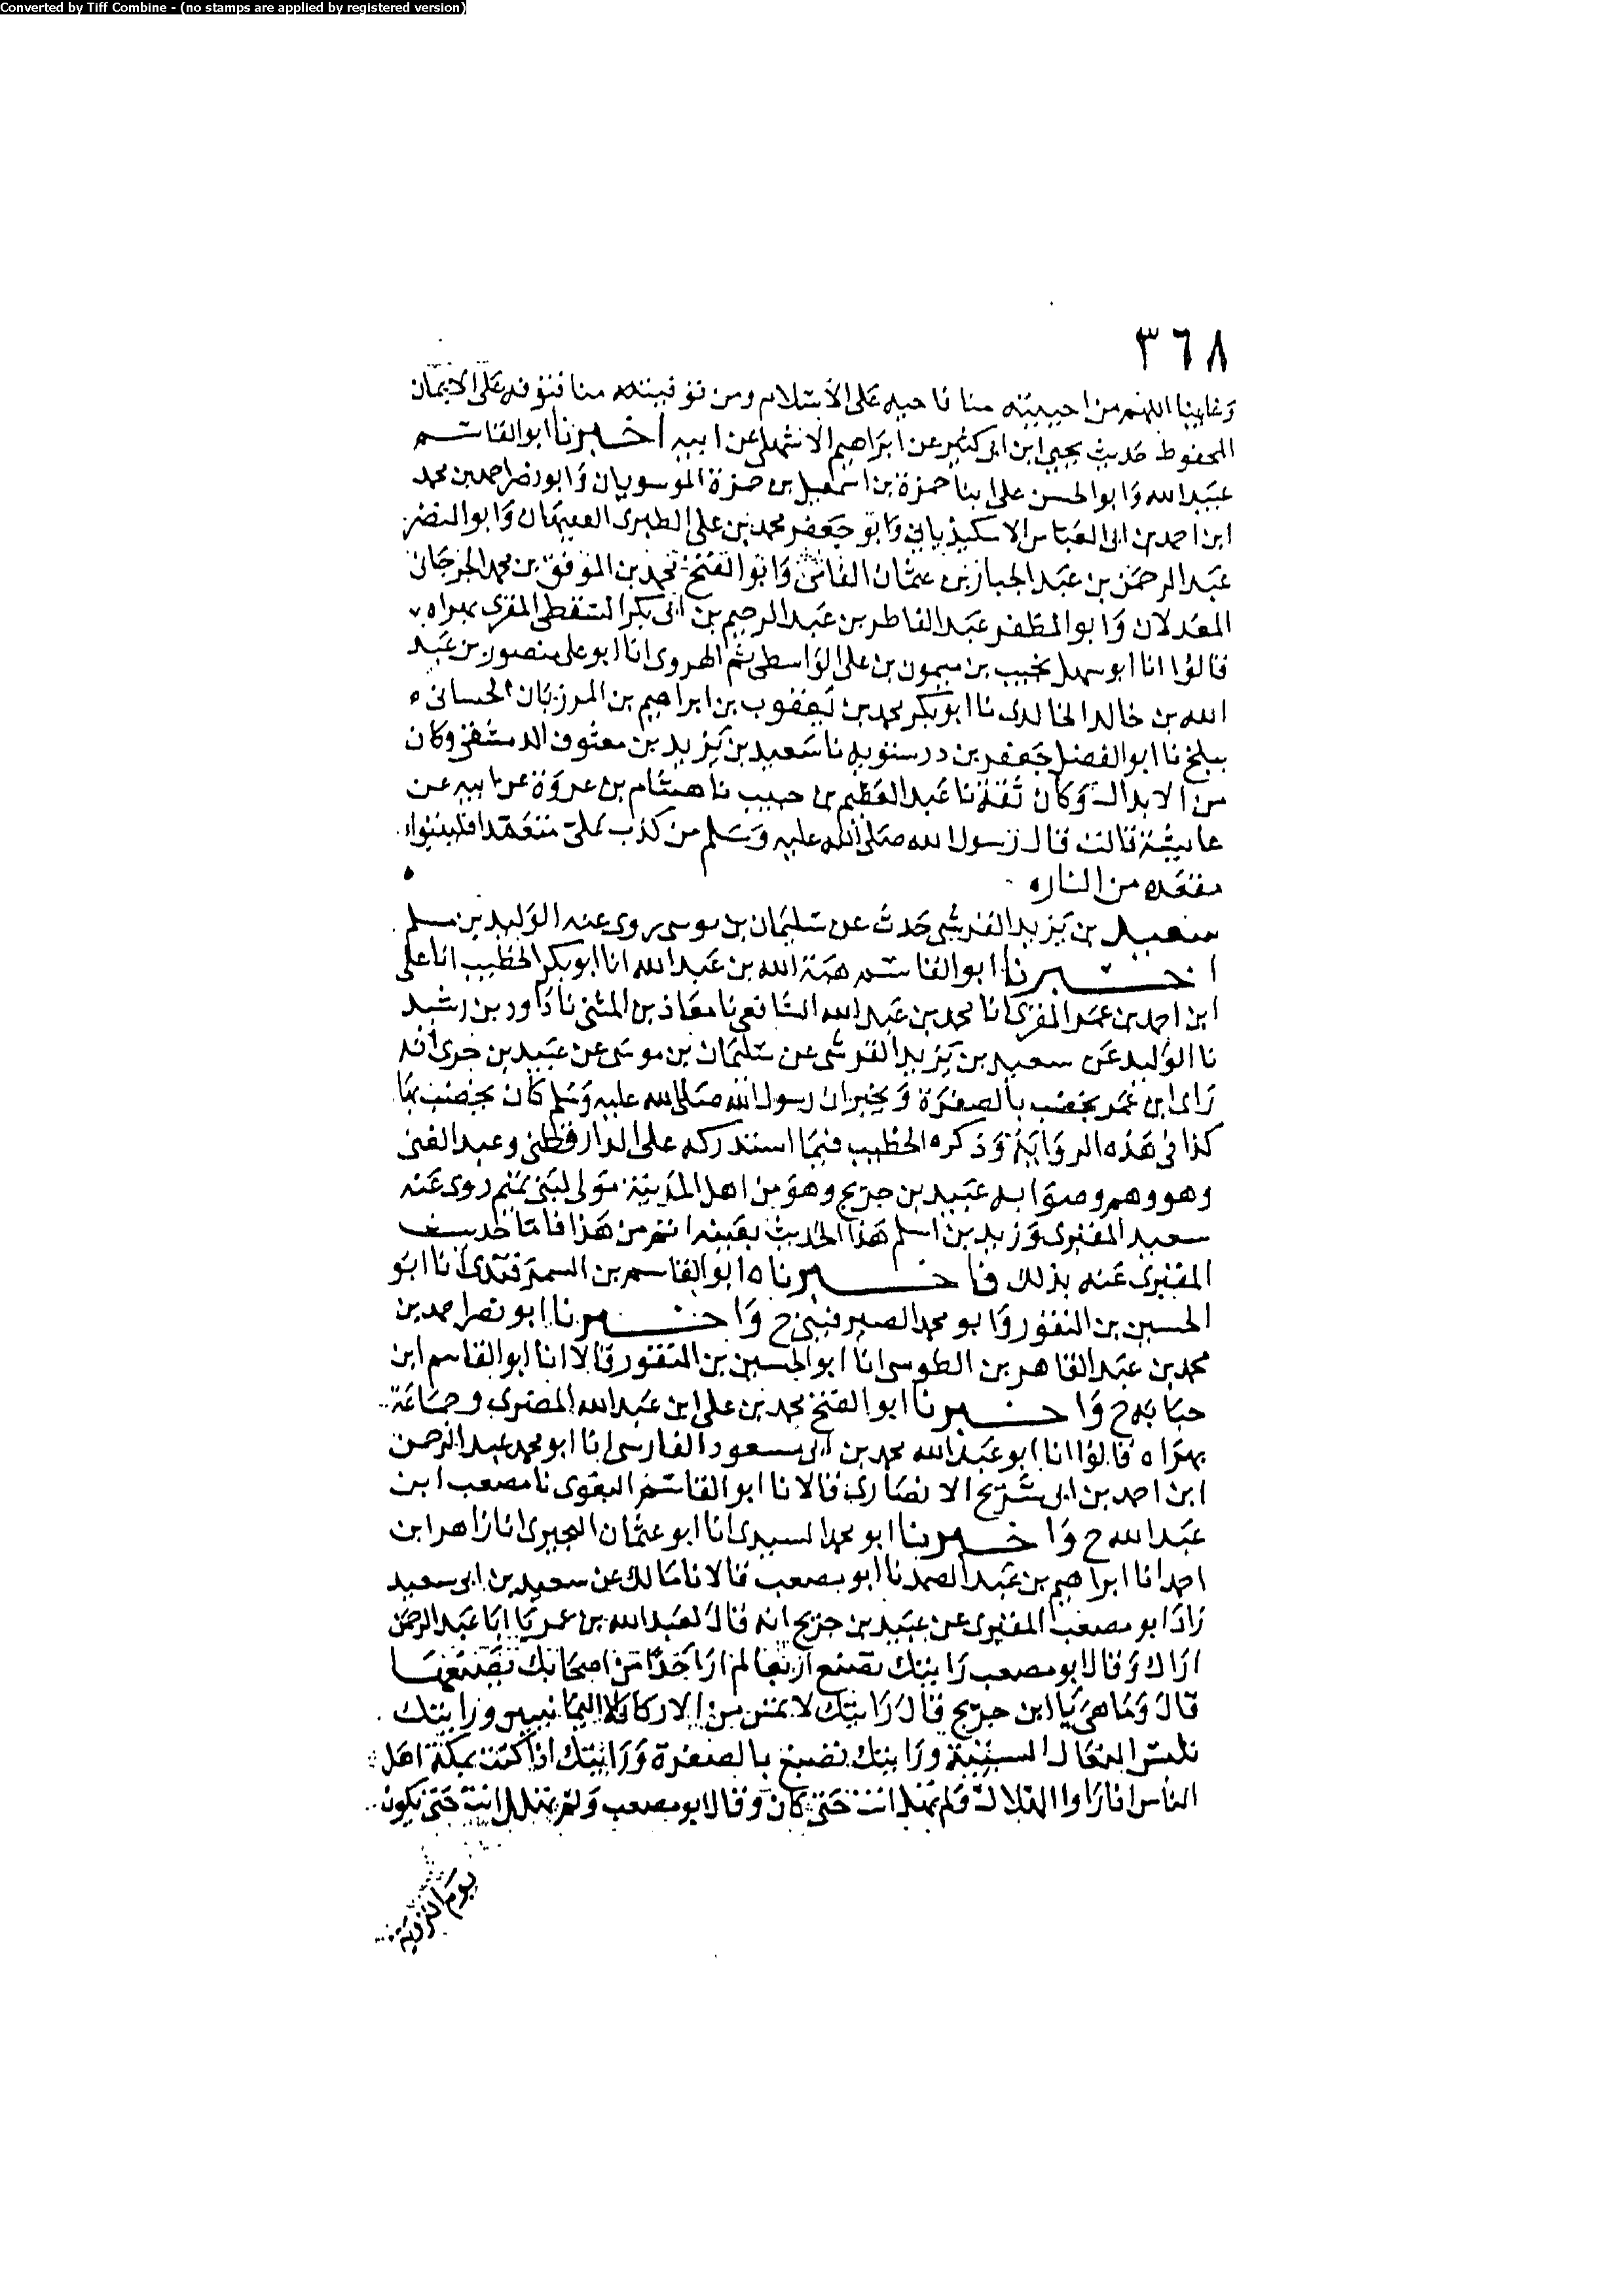 Converted by Tiff Combine - (no stamps are applied by registered version)
٣٦٨
وغايبنا اللهم من احييته منا فاحيه على الاسلام ومن توفيته منا فتوفه على الايمان
المحفوظ حديث يحيى ابن ابى كثير عن ابراهيم الاشهلى عن ابيه اخبرنا ابو القاسم
عبيد الله وابو الحسن على ابنا حمزة بن اسمعيل بن حمزة الموسويان وابو نصر احمد بن محمد
ابن احمد بن ابى العباس الاسكيذبانى وابو جعفر محمد بن على الطبرى الفقيهان وابو النضر
عبد الرحمن بن عبد الجبار بن عثمان الفامى وابو الفتح محمد بن الموفق بن محمد الجرجانى
المعدلان وابو المظفر عبد الفاطر بن عبد الرحيم بن ابى بكر السقطى المقرى بهراه
قالوا انا ابو سهل نجيب بن ميمون بن على الواسطى ثم الهروى انا ابو على منصور بن عبد
الله بن خالد الخالدى نا ابو بكر محمد بن يعقوب بن ابراهيم بن المرزبان الحسانى ه
ببلخ نا ابو الفضل جعفر بن درستويه نا سعيد بن يزيد بن معيوف الدمشقى وكان
من الابدال وكان ثقة نا عبد العظيم بن حبيب نا هشام بن عروة عن ابيه عن
عايشة قالت قال رسول الله صلى الله عليه وسلم من كذب على متعمدا فليتبوا
مقعده من النار ه
سعيد بن يزيد القرشى حدث عن سليمان بن موسى روى عنه الوليد بن مسلم
اخبرنا ابو القاسم هبة الله بن عبد الله انا ابو بكر الخطيب انا على
ابن احمد بن عمر المقرى انا محمد بن عبد الله الشافعى نا معاذ بن المثنى نا داود بن رشيد
نا الوليد عن سعيد بن يزيد القرشى عن سليمان بن موسى عن عبيد بن جرى انه
راى ابن عمر يخضب بالصفرة ويخبر ان رسول الله صلى الله عليه وسلم كان يخضب بها
كذا فى هذه الرواية وذكره الخطيب فيما استدركه على الدارقطنى وعبد الغنى
وهو وهم وصوابه عبيد بن جريج وهو من اهل المدينة مولى لبنى تميم روى عنه
سعيد المقبرى وزيد بن اسلم هذا الحديث بعينه اتم من هذا فاما حديث
المقبرى عنه بذلك فاخبرناه ابو القاسم بن السمرقندى انا ابو
الحسين بن النقور وابو محمد الصريفينى ح واخبرنا ابو نصر احمد بن
محمد بن عبد القاهر بن الطوسى انا ابو الحسين بن النقور قالا انا ابو القاسم ابن
حبابة ح واخبرنا ابو الفتح محمد بن على ابن عبد الله المصرى وجماعة
بهراه قالوا انا ابو عبد الله محمد بن ابى مسعود الفارسى انا ابو محمد عبد الرحمن
ابن احمد بن ابى شريح الانصارى قالا نا ابو القاسم البغوى نا مصعب ابن
عبد الله ح واخبرنا ابو محمد السيدى انا ابو عثمان البحيرى انا زاهر ابن
احمد انا ابراهيم بن عبد الصمد نا ابو مصعب قالا نا مالك عن سعيد بن ابى سعيد
زاد ابو مصعب المقبرى عن عبيد بن جريج انه قال لعبد الله بن عمر يا ابا عبد الرحمن
اراك وقال ابو مصعب رايتك تصنع اربعا لم ار احدا من اصحابك يصنعها
قال وما هى يا ابن جريج قال رايتك لا تمس من الاركان الا اليمانيين ورايتك
تلبس النعال السبتية ورايتك تصبغ بالصفرة ورايتك اذا كنت بمكة اهل
الناس اذا راوا الهلال ولم تهل انت حتى كان وقال ابو مصعب ولم تهلل انت حتى يكون
يوم التروية